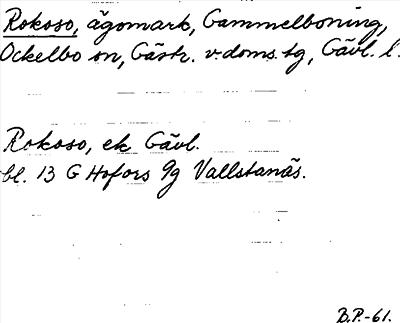 Rokoso, ägomark, Gammelboning,
Ockelbo sn, Gästr. v. doms. tg, Gävl. l.
Rokoso, ek Gävl.
bl. 13 G Hofors 9g Vallstanäs.
B.P.-61.